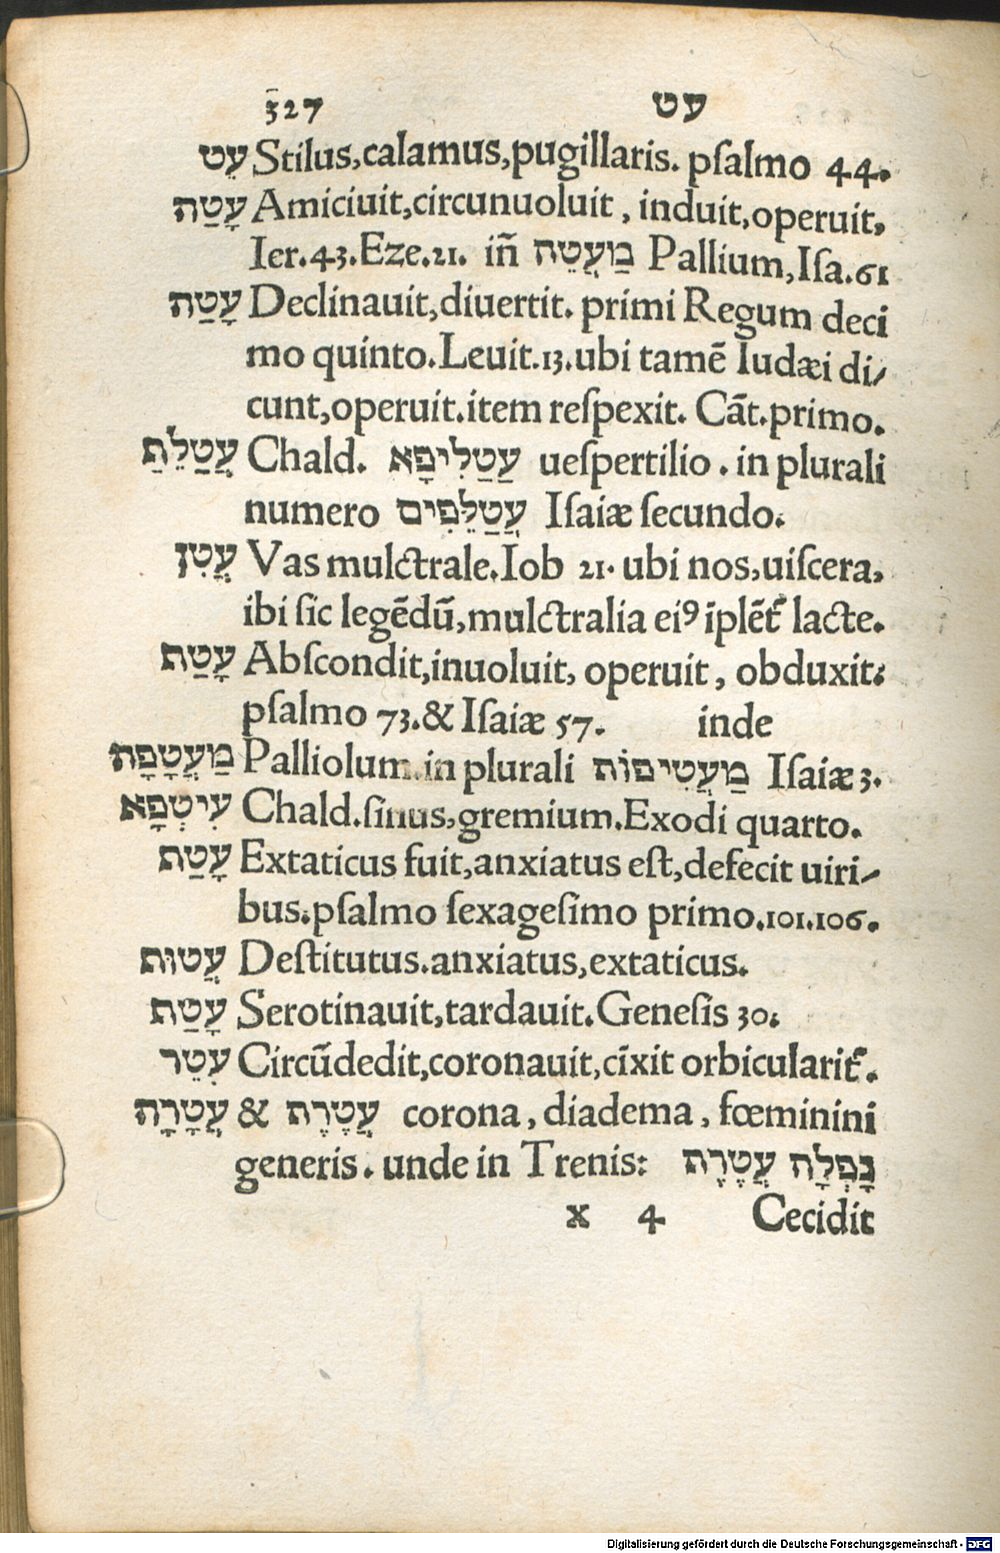 327 עט
עֵט Stilus,calamus,pugillaris. pſalmo 44.
עָטַה Amiciuit,circunuoluit, induit,operuit,
Ier.43.Eze.21. iñ מַעֲטֵה Pallium,Iſa.61
עָטַה Declinauit,diuertit. primi Regum deci
mo quinto.Leuit.13.ubi tamē Iudæi di/
cunt,operuit.item reſpexit. Cāt.primo.
עֲטַלֵּת Chald. עַטַלִיפָא ueſpertilio. in plurali
numero עֲטַלֵּפִים Iſaiæ ſecundo.
עֲטִן Vas mulctrale.Iob 21. ubi nos,uiſcera,
ibi ſic legēdū,mulctralia eiꝰ īplēt᷑ lacte.
עָטַת Abſcondit,inuoluit, operuit, obduxit.
pſalmo 73.& Iſaiæ 57. inde
מַעֲטָפָה Palliolum.in plurali מַעֲטִיפוֹת Iſaiæ 3.
עִיטְפָא Chald.ſinus,gremium.Exodi quarto.
עָטַת Extaticus fuit,anxiatus eſt,defecit uiri/
bus.pſalmo ſexageſimo primo.101.106.
עֲטוּת Deſtitutus.anxiatus,extaticus.
עָטַת Serotinauit,tardauit.Geneſis 30.
עִטֵר Circūdedit,coronauit,cīxit orbicularit᷑.
עֲטָרָה & עֲטֶרֶת corona, diadema, fœminini
generis. unde in Trenis: נָפְלָה עֲטֶרֶת
x 4 Cecidit
Digitalisierung gefördert durch die Deutsche Forschungsgemeinschaft - DFG